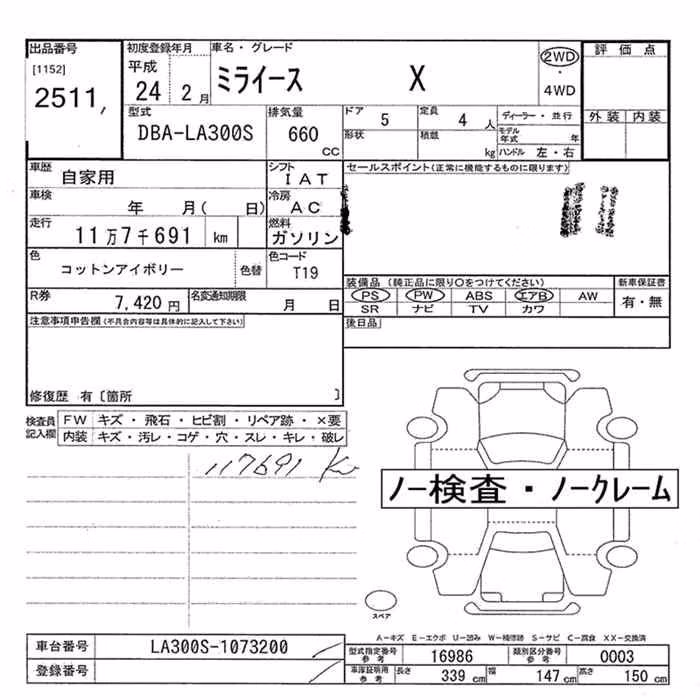 出品番号 [1152] 2511,
初度登録年月 平成 24 2月
車名・グレード ミライース X
2WD ・ 4WD
評価点
外装 内装
型式 DBA-LA300S
排気量 660 CC
ドア 5 定員 4人
形状 積載 kg
ディーラー・並行
モデル年式 年
ハンドル 左・右
車歴 自家用
シフト IAT
車検 年 月( 日)
冷房 AC
走行 11万7千691 km
燃料 ガソリン
色 コットンアイボリー 色替
色コード T19
R券 7,420円
名変通知期限 月 日
セールスポイント(正常に機能するものに限ります)
装備品 (純正品に限り○をつけてください)
PS PW ABS エアB AW
SR ナビ TV カワ
新車保証書 有・無
後日品
注意事項申告欄(不具合内容等は具体的に記入して下さい)
修復歴 有〔箇所 〕
検査員記入欄
FW キズ・飛石・ヒビ割・リペア跡・×要
内装 キズ・汚レ・コゲ・穴・スレ・キレ・破レ
117691 Km
ノー検査・ノークレーム
スペア
A―キズ E―エクボ U―凹み W―補修跡 S―サビ C―腐食 XX―交換済
車台番号 LA300S-1073200
登録番号
型式指定番号 参考 16986
類別区分番号 参考 0003
車庫証明用 参考 長さ 339 cm 幅 147 cm 高さ 150 cm